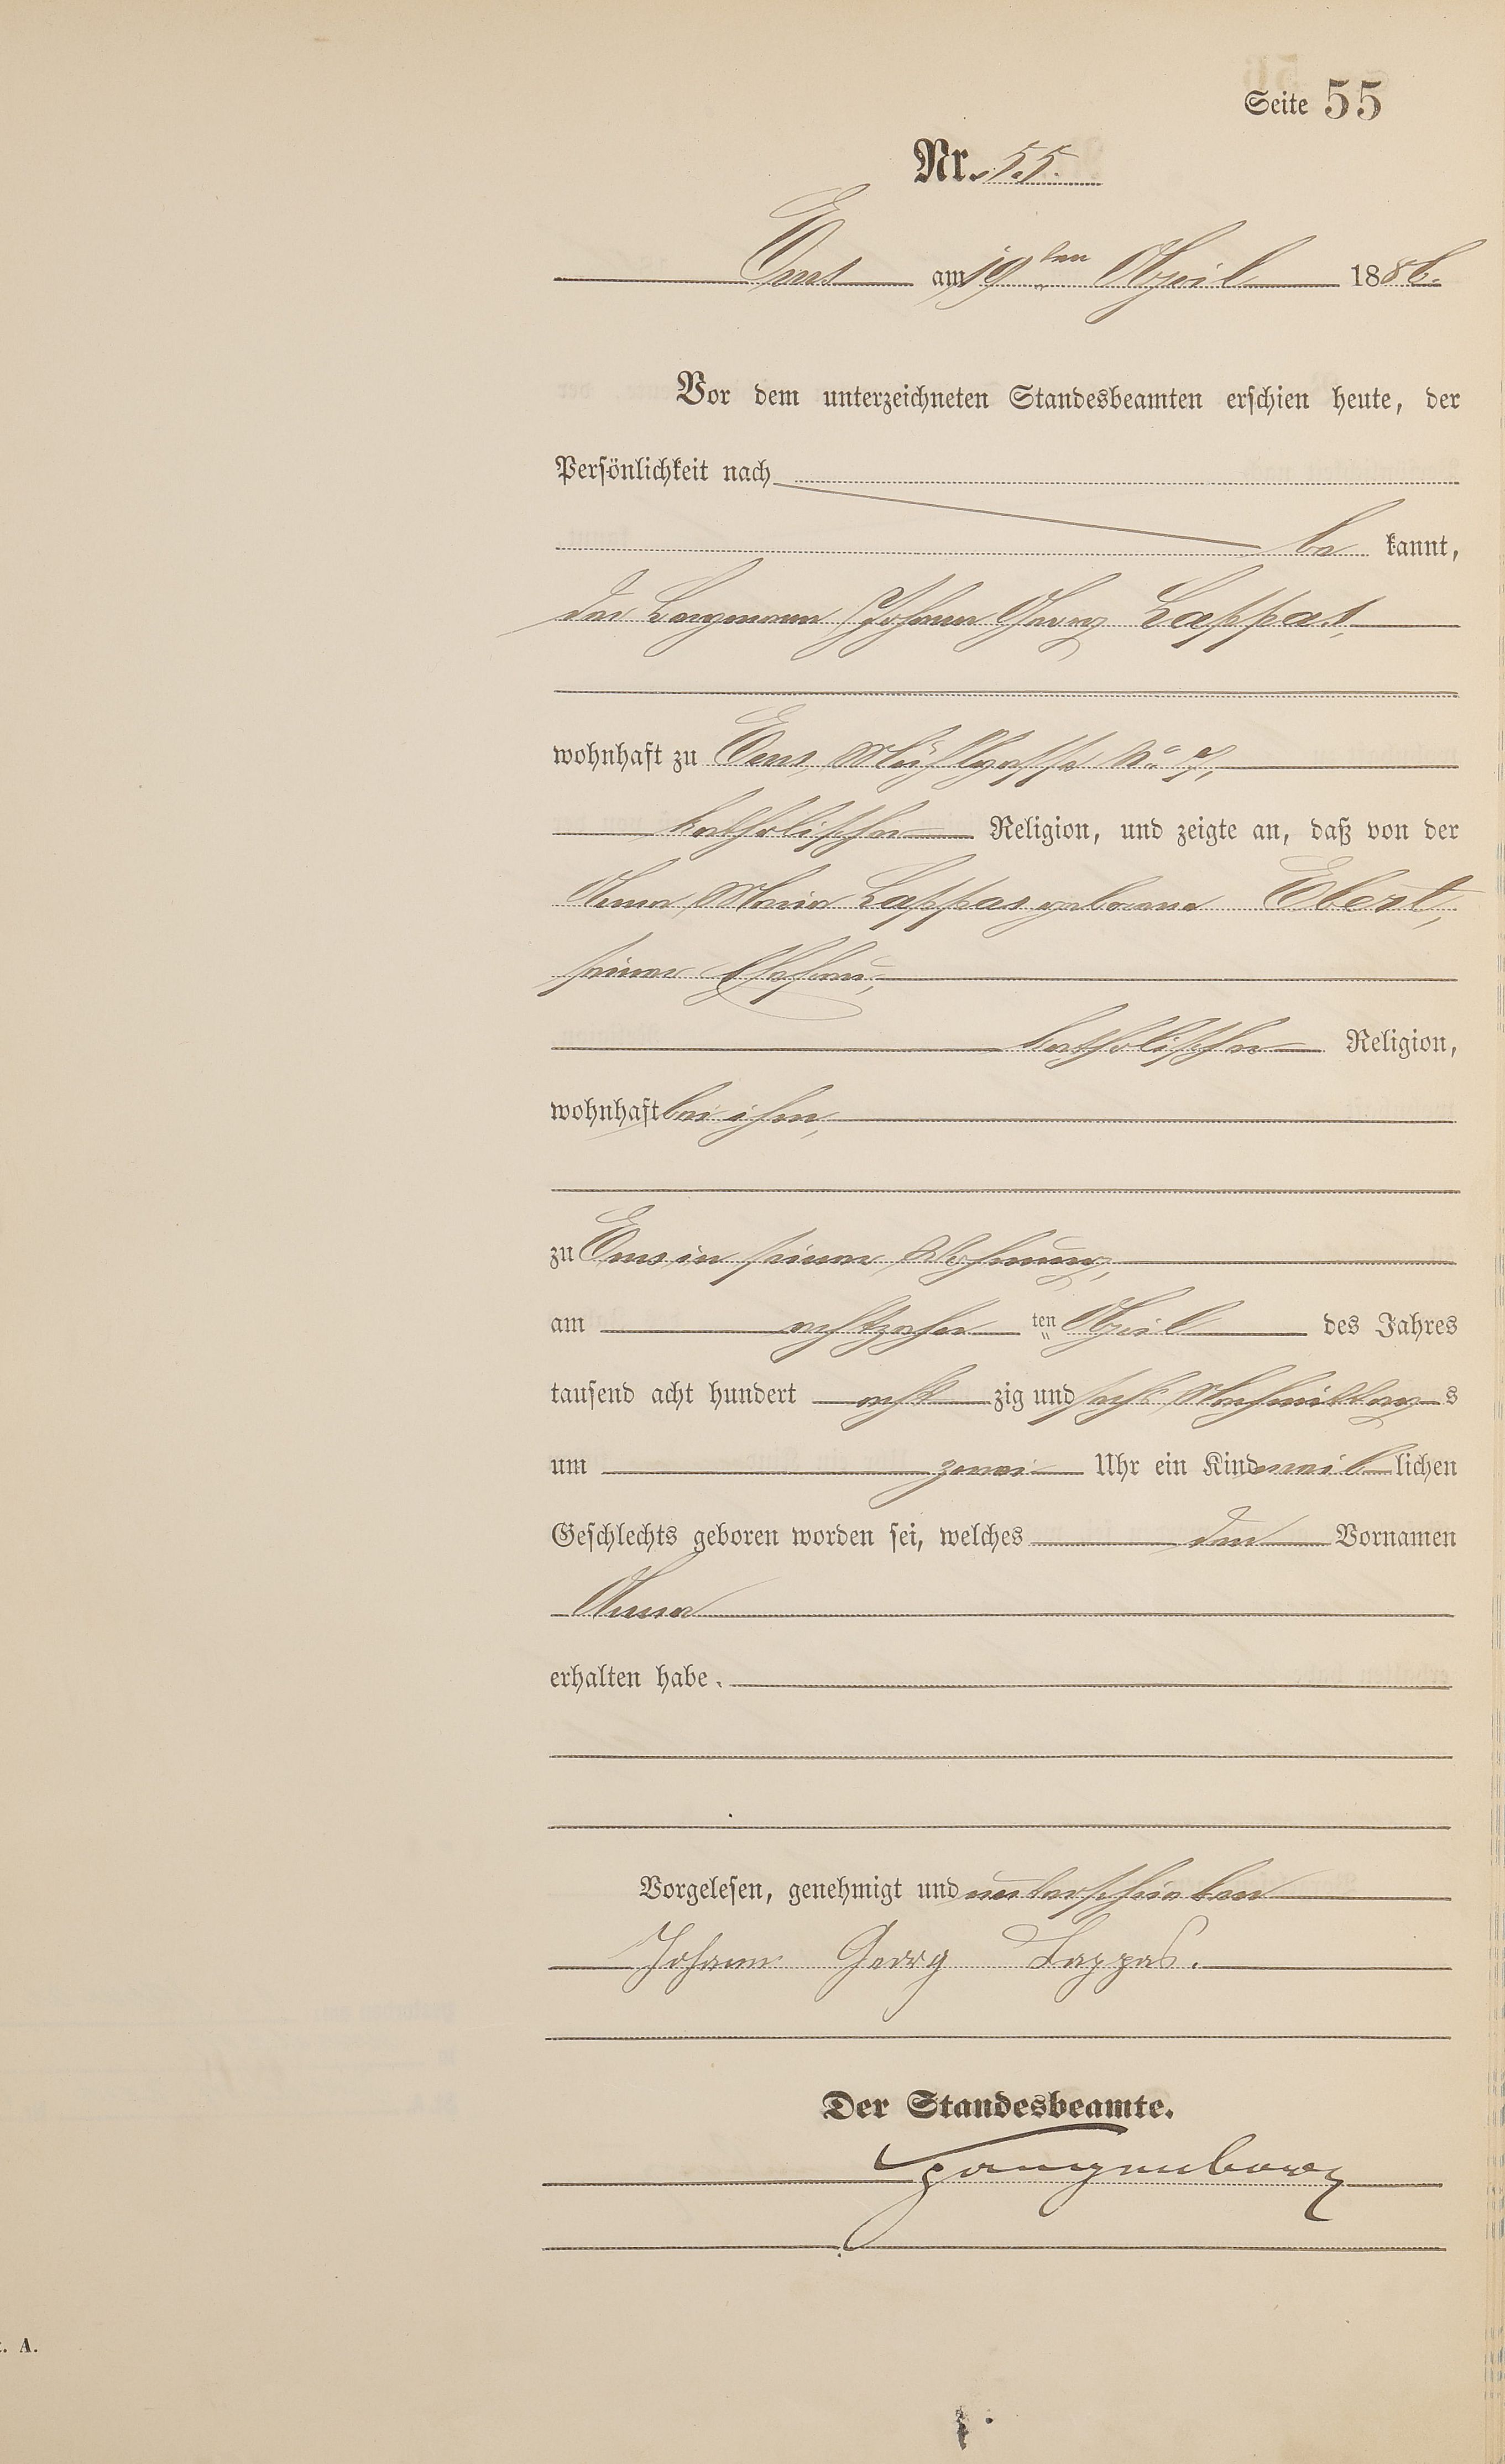 Seite 55
Nr. 55.
Ems am 19ten April 1886.
Vor dem unterzeichneten Standesbeamten erschien heute, der
Persönlichkeit nach
be kannt,
der Bergmann Johann Georg Lappas,
wohnhaft zu Ems, Mühlgasse No 7,
katholischer Religion, und zeigte an, daß von der
Anna Maria Lappas geborene Ebert,
seiner Ehefrau,
katholischer Religion,
wohnhaft bei ihm,
zu Ems in seiner Wohnung,
am achtzehn ten April des Jahres
tausend acht hundert acht zig und sechs Nachmittag s
um zwei Uhr ein Kind weib lichen
Geschlechts geboren worden sei, welches den Vornamen
Anna
erhalten habe.
Vorgelesen, genehmigt und unterschrieben
Johann Georg Lappas.
Der Standesbeamte.
. A.